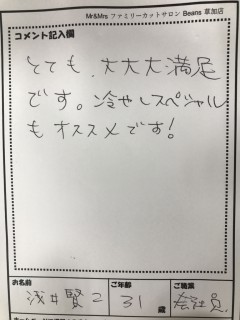 Mr&Mrs ファミリーカットサロン Beans 草加店
コメント記入欄
とても、大大大満足
です。冷やしスペシャル
もオススメです!
お名前 ご年齢 ご職業
浅井賢二 31歳 会社員